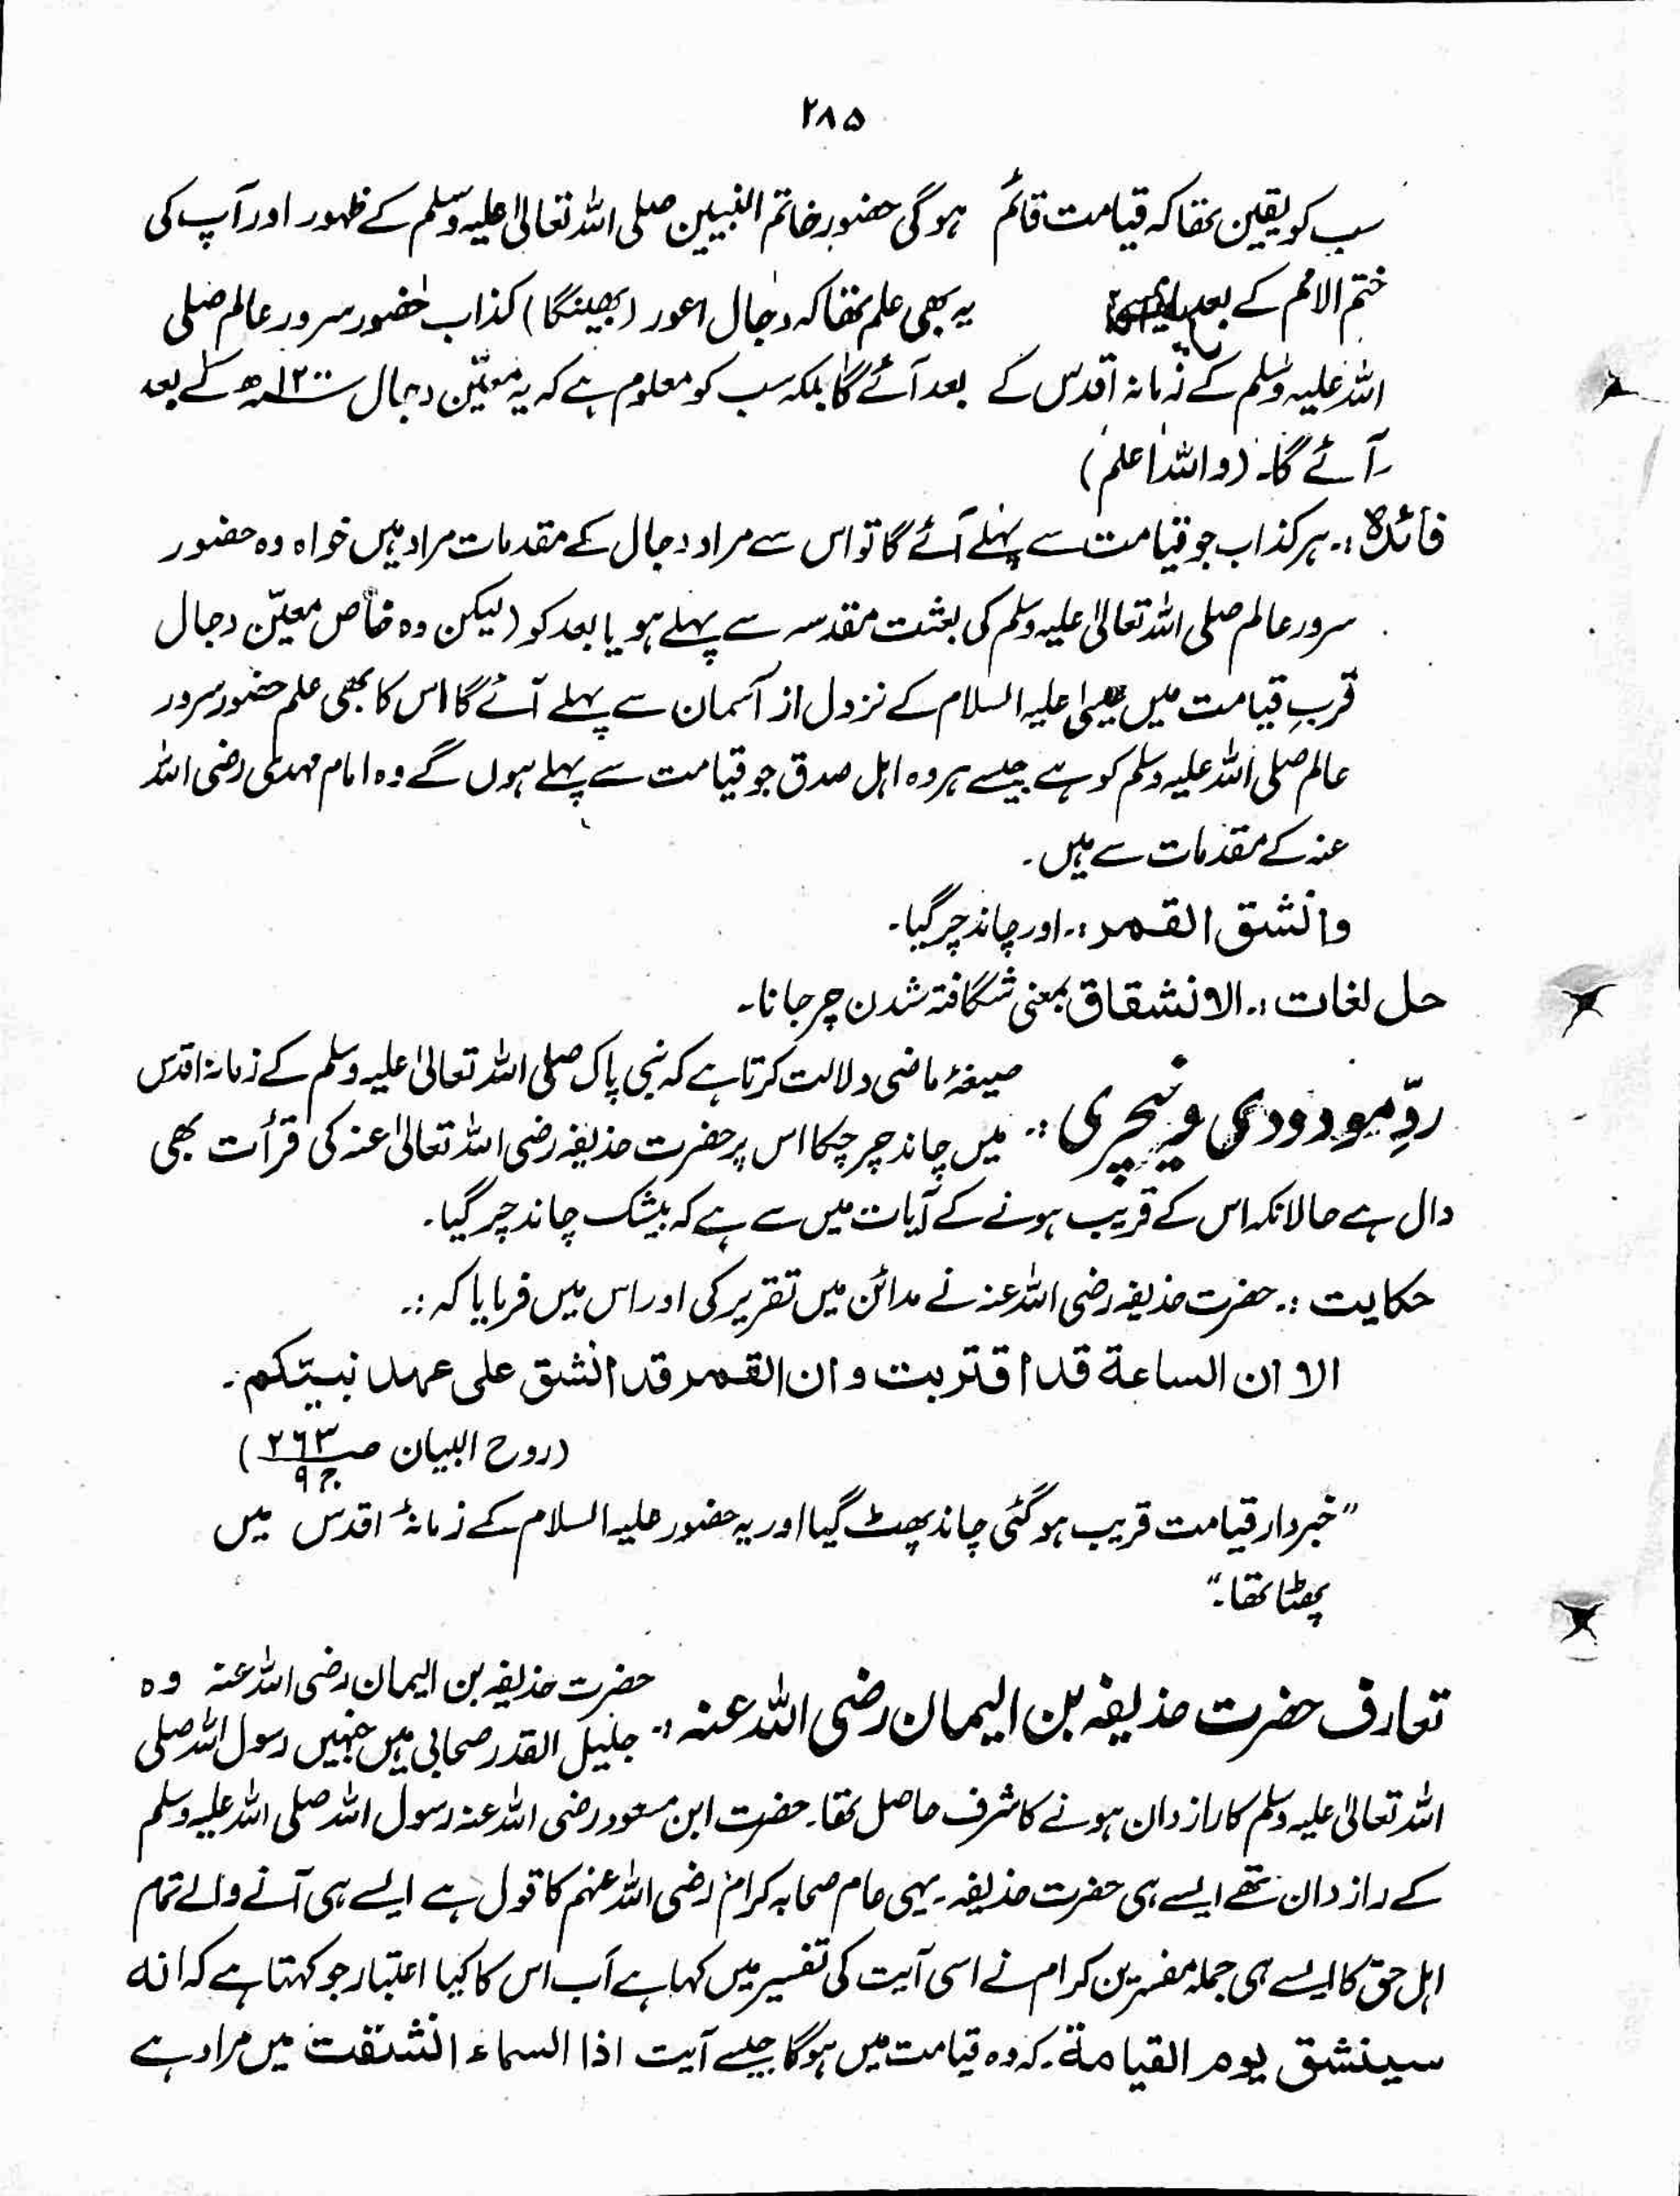 ۲۸۵
سب کو یقین تھا کہ قیامت قائم ہو گی حضور خاتم النبیین صلی اللہ تعالیٰ علیہ وسلم کے ظہور اور آپ کی
ختم الامم کے بعد یہ بھی علم تھا کہ دجال اعور (بھینگا) کذاب حضور سرور عالم صلی
اللہ علیہ وسلم کے زمانہ اقدس کے بعد آئے گا بلکہ سب کو معلوم ہے کہ یہ معیّن دجال ۱۲۰۰ھ کے بعد
آئے گا۔ (واللہ اعلم)
فائدہ :۔ ہر کذاب جو قیامت سے پہلے آئے گا تو اس سے مراد دجال کے مقدمات مراد ہیں خواہ وہ حضور
سرور عالم صلی اللہ تعالیٰ علیہ وسلم کی بعثت مقدسہ سے پہلے ہو یا بعد کو (لیکن وہ خاص معیّن دجال
قربِ قیامت میں عیسیٰ علیہ السلام کے نزول از آسمان سے پہلے آئے گا اس کا بھی علم حضور سرور
عالم صلی اللہ علیہ وسلم کو ہے جیسے ہر وہ اہل صدق جو قیامت سے پہلے ہوں گے وہ امام مہدی رضی اللہ
عنہ کے مقدمات سے ہیں۔
وانشق القمر :۔ اور چاند چر گیا۔
حل لغات :۔ الانشقاق بمعنی شگافتہ شدن چر جانا۔
ردِّ مودودی و نیچری :۔ صیغۂ ماضی دلالت کرتا ہے کہ نبی پاک صلی اللہ تعالیٰ علیہ وسلم کے زمانۂ اقدس
میں چاند چر چکا اس پر حضرت حذیفہ رضی اللہ تعالیٰ عنہ کی قرأت بھی
دال ہے حالانکہ اس کے قریب ہونے کے آیات میں سے ہے کہ بیشک چاند چر گیا۔
حکایت :۔ حضرت حذیفہ رضی اللہ عنہ نے مدائن میں تقریر کی اور اس میں فرمایا کہ :۔
الا ان الساعة قد اقتربت وان القمر قد انشق علی عہد نبیّکم۔
(روح البیان صـ ۲۶۳ ج ۹)
”خبردار قیامت قریب ہو گئی چاند پھٹ گیا اور یہ حضور علیہ السلام کے زمانۂ اقدس میں
پھٹا تھا۔“
تعارف حضرت حذیفہ بن الیمان رضی اللہ عنہ :۔ حضرت حذیفہ بن الیمان رضی اللہ عنہ وہ
جلیل القدر صحابی ہیں جنہیں رسول اللہ صلی
اللہ تعالیٰ علیہ وسلم کا راز دان ہونے کا شرف حاصل تھا۔ حضرت ابن مسعود رضی اللہ عنہ رسول اللہ صلی اللہ علیہ وسلم
کے راز دان تھے ایسے ہی حضرت حذیفہ۔ یہی عام صحابہ کرام رضی اللہ عنہم کا قول ہے ایسے ہی آنے والے تمام
اہل حق کا ایسے ہی جملہ مفسرین کرام نے اسی آیت کی تفسیر میں کہا ہے اَب اس کا کیا اعتبار جو کہتا ہے کہ انه
سینشق یوم القیامة۔ کہ وہ قیامت میں ہو گا جیسے آیت اذا السماء انشقت میں مراد ہے